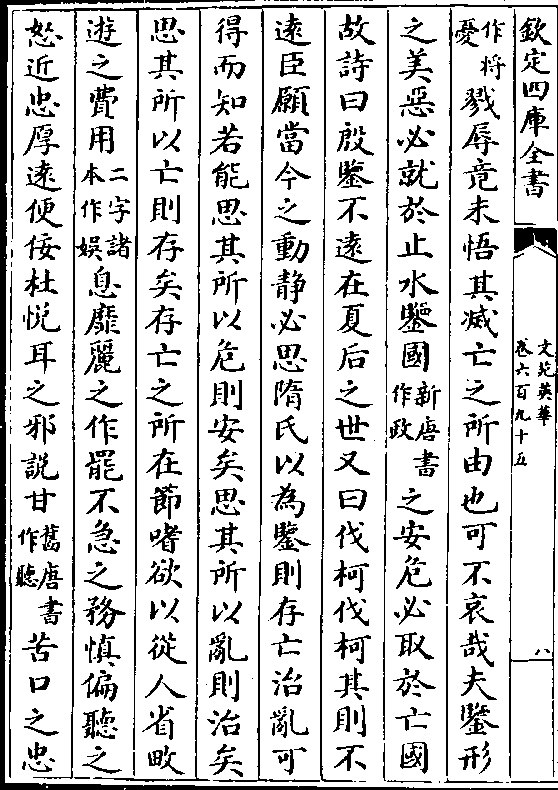 欽定四庫全書
文苑英華
卷六百九十五
八
作將憂戮辱竟未悟其滅亡之所由也可不哀哉夫鑒形
之美惡必就於止水鑒國新唐書作政之安危必取於亡國
故詩曰殷鑒不遠在夏后之世又曰伐柯伐柯其則不
遠臣願當今之動靜必思隋氏以為鑒則存亡治亂可
得而知若能思其所以危則安矣思其所以亂則治矣
思其所以亡則存矣存亡之所在節嗜欲以從人省畋
遊之費用二字諸本作娯息靡麗之作罷不急之務慎偏聽之
怒近忠厚遠便佞杜悅耳之邪說甘舊唐書作聽苦口之忠